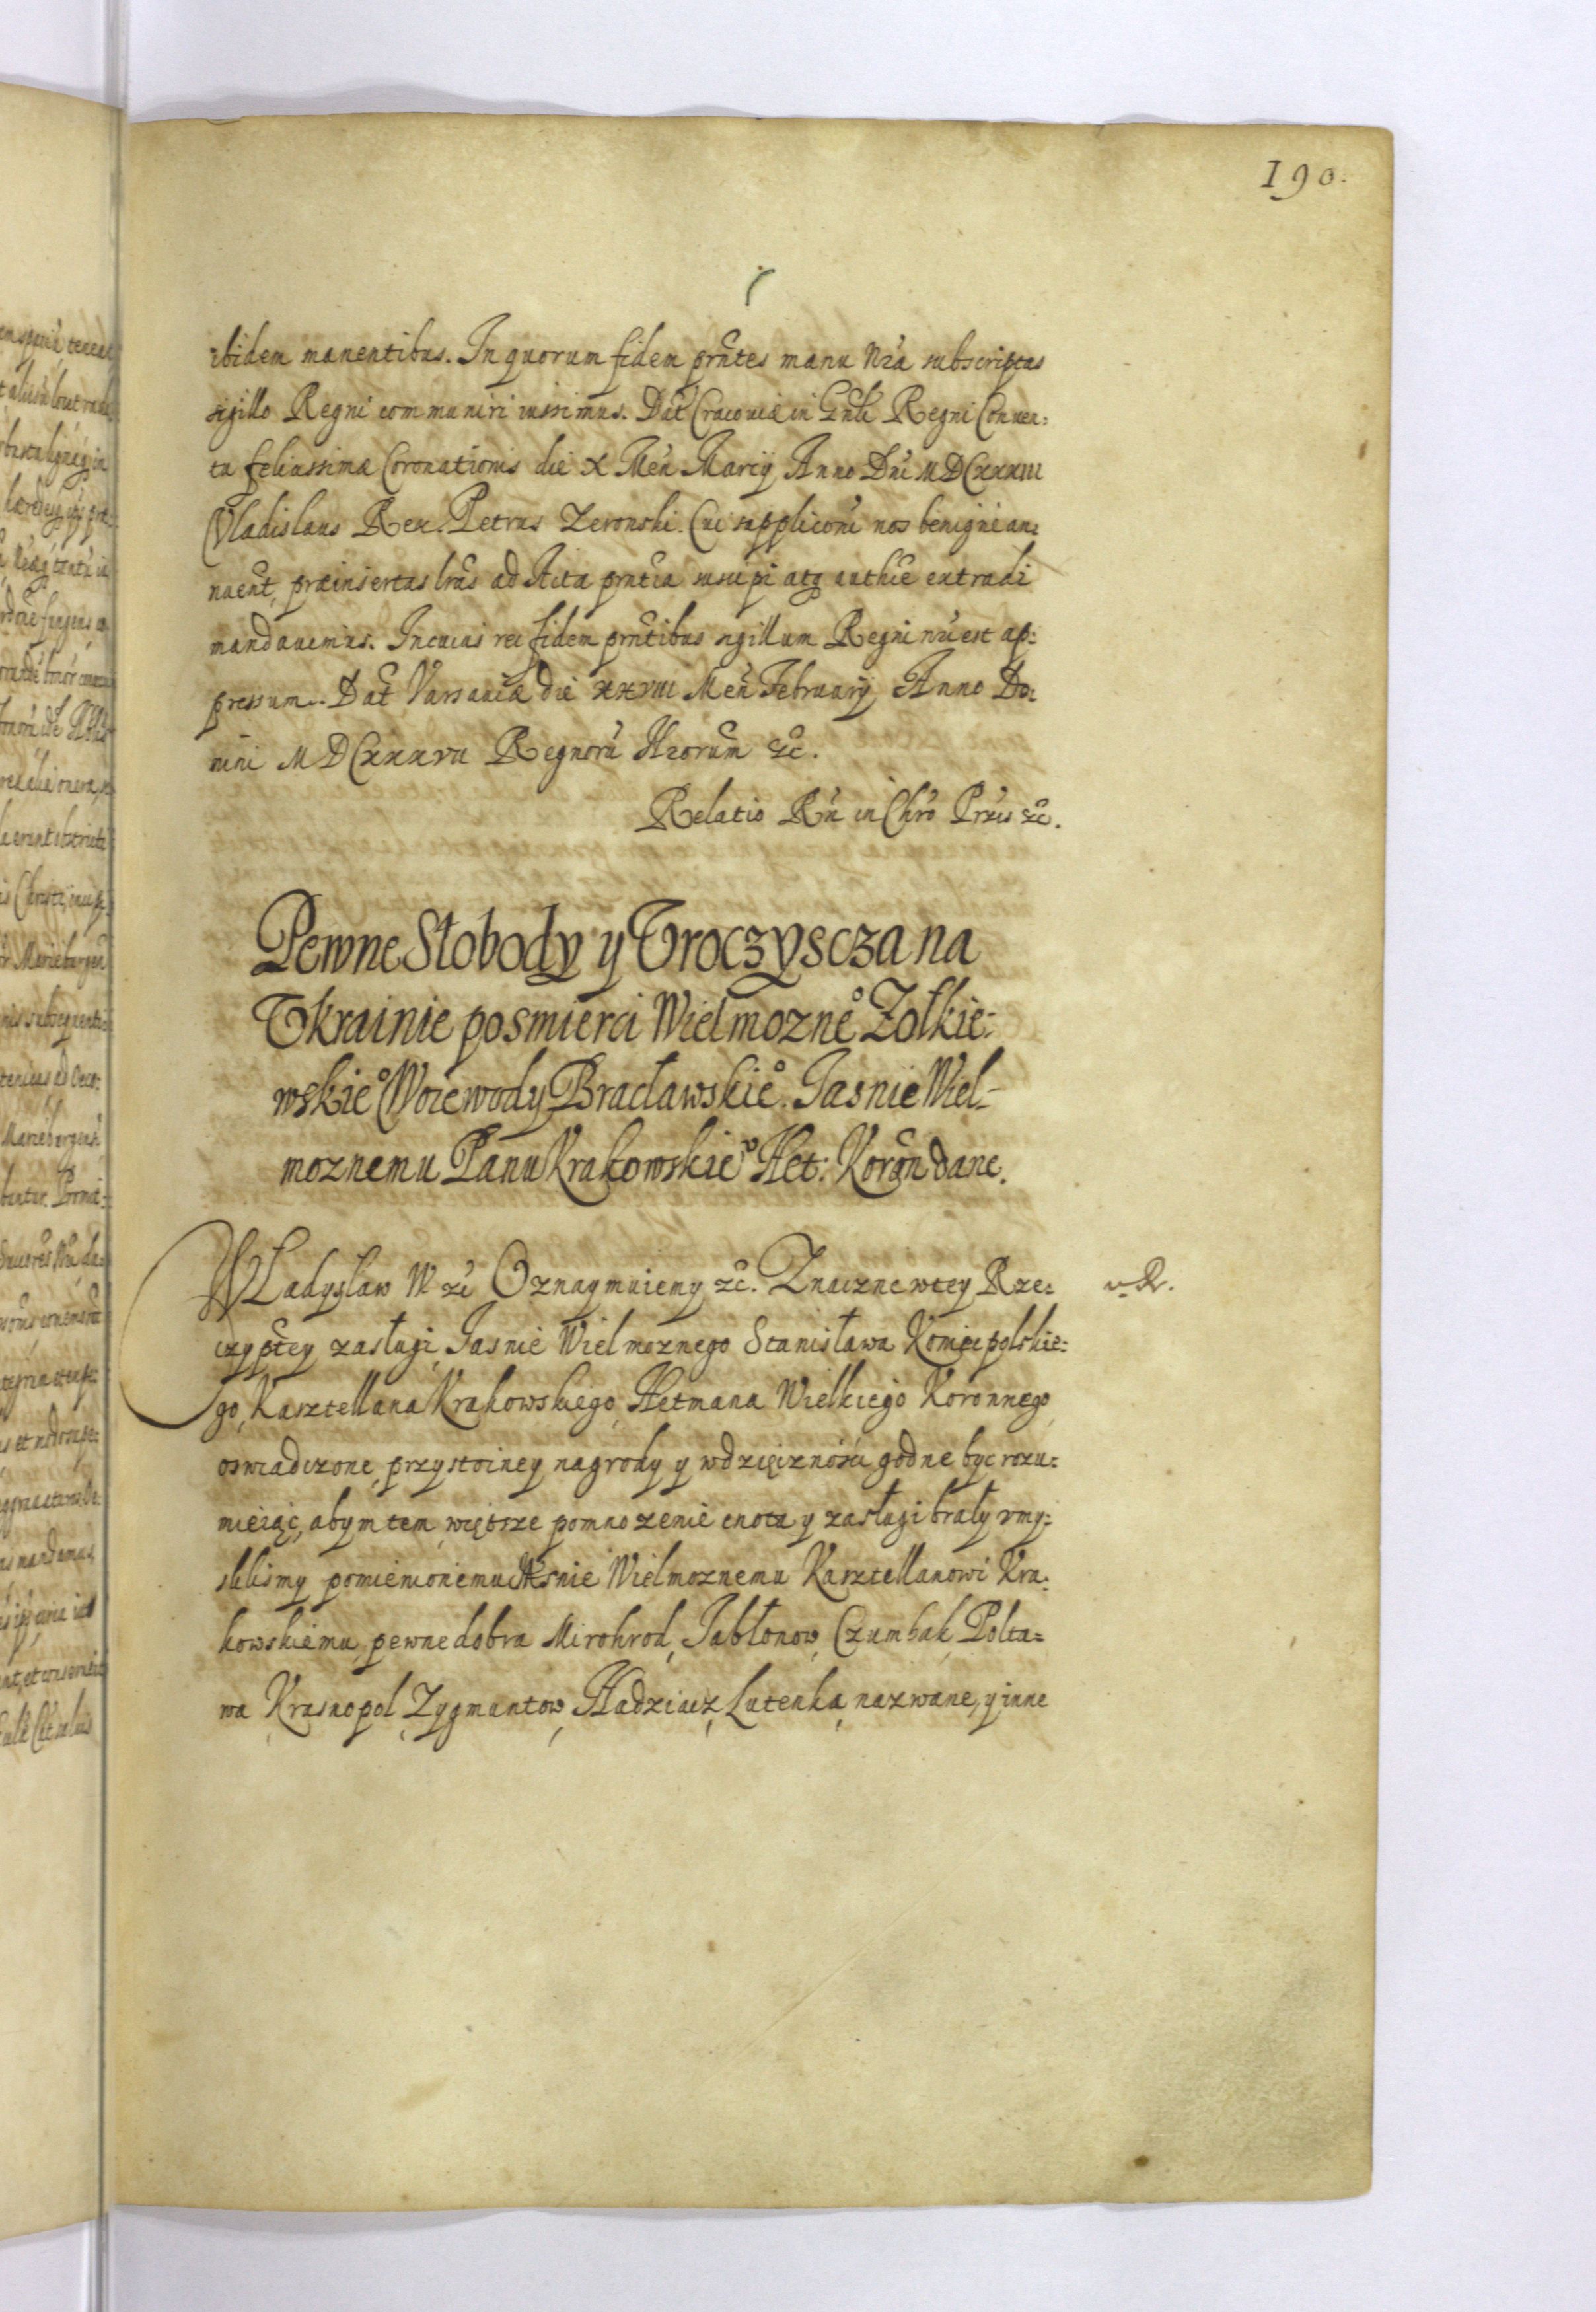 190.
ibidem manentibus. In quorum fidem prntes manu Nra subscriptas
sigillo Regni communiri iussimus. Dat Cracoviæ in Gnli Regni Conven:
tu felicissimæ Coronationis die X Men Marcÿ Anno Dni MDCXXXIII
Vladislaus Rex. Petrus Zeronski. Cui suppliconi nos benigne an:
nuent, præinsertas lras ad Acta prntia suscipi atq authce extradi
mandavimus. In cuius rei fidem prntibus sigillum Regni nri est ap:
pressum. Dat Varsaviæ die XXVIII Men February Anno Do:
mini MDCXXXVII Regnoru Nrorum &c.
Relatio Rn in Chro Pris &c.
Pewne Słobody y Uroczyscza na
Ukrainie po smierci Wielmoznego Zołkie:
wskiego Woiewody Bracławskiego. Jasnie Wiel-
moznemu Panu Krakowskiego Het: Koron dane.
WŁadysław IV &c Oznaymuiemy &c. Znaczne w tey Rze: v. R.
czyptey zasługi, Jasnie Wielmoznego Stanisława Koniecpolskie:
go, Kasztellana Krakowskiego, Hetmana Wielkiego Koronnego
oswiadczone, przystoiney nagrody y wdzięcznosci godne byc rozu:
mieiąc, abym tem większe pomnozenie cnota y zasługi brały vmy:
slilismy pomienionemu Jasnie Wielmoznemu Kasztellanowi Kra:
kowskiemu, pewne dobra Mirohrod, Jabłonow, Czumbak, Polta:
wa Krasnopol, Zygmuntow, Hadziacz, Lutenka, nazwane, y inne